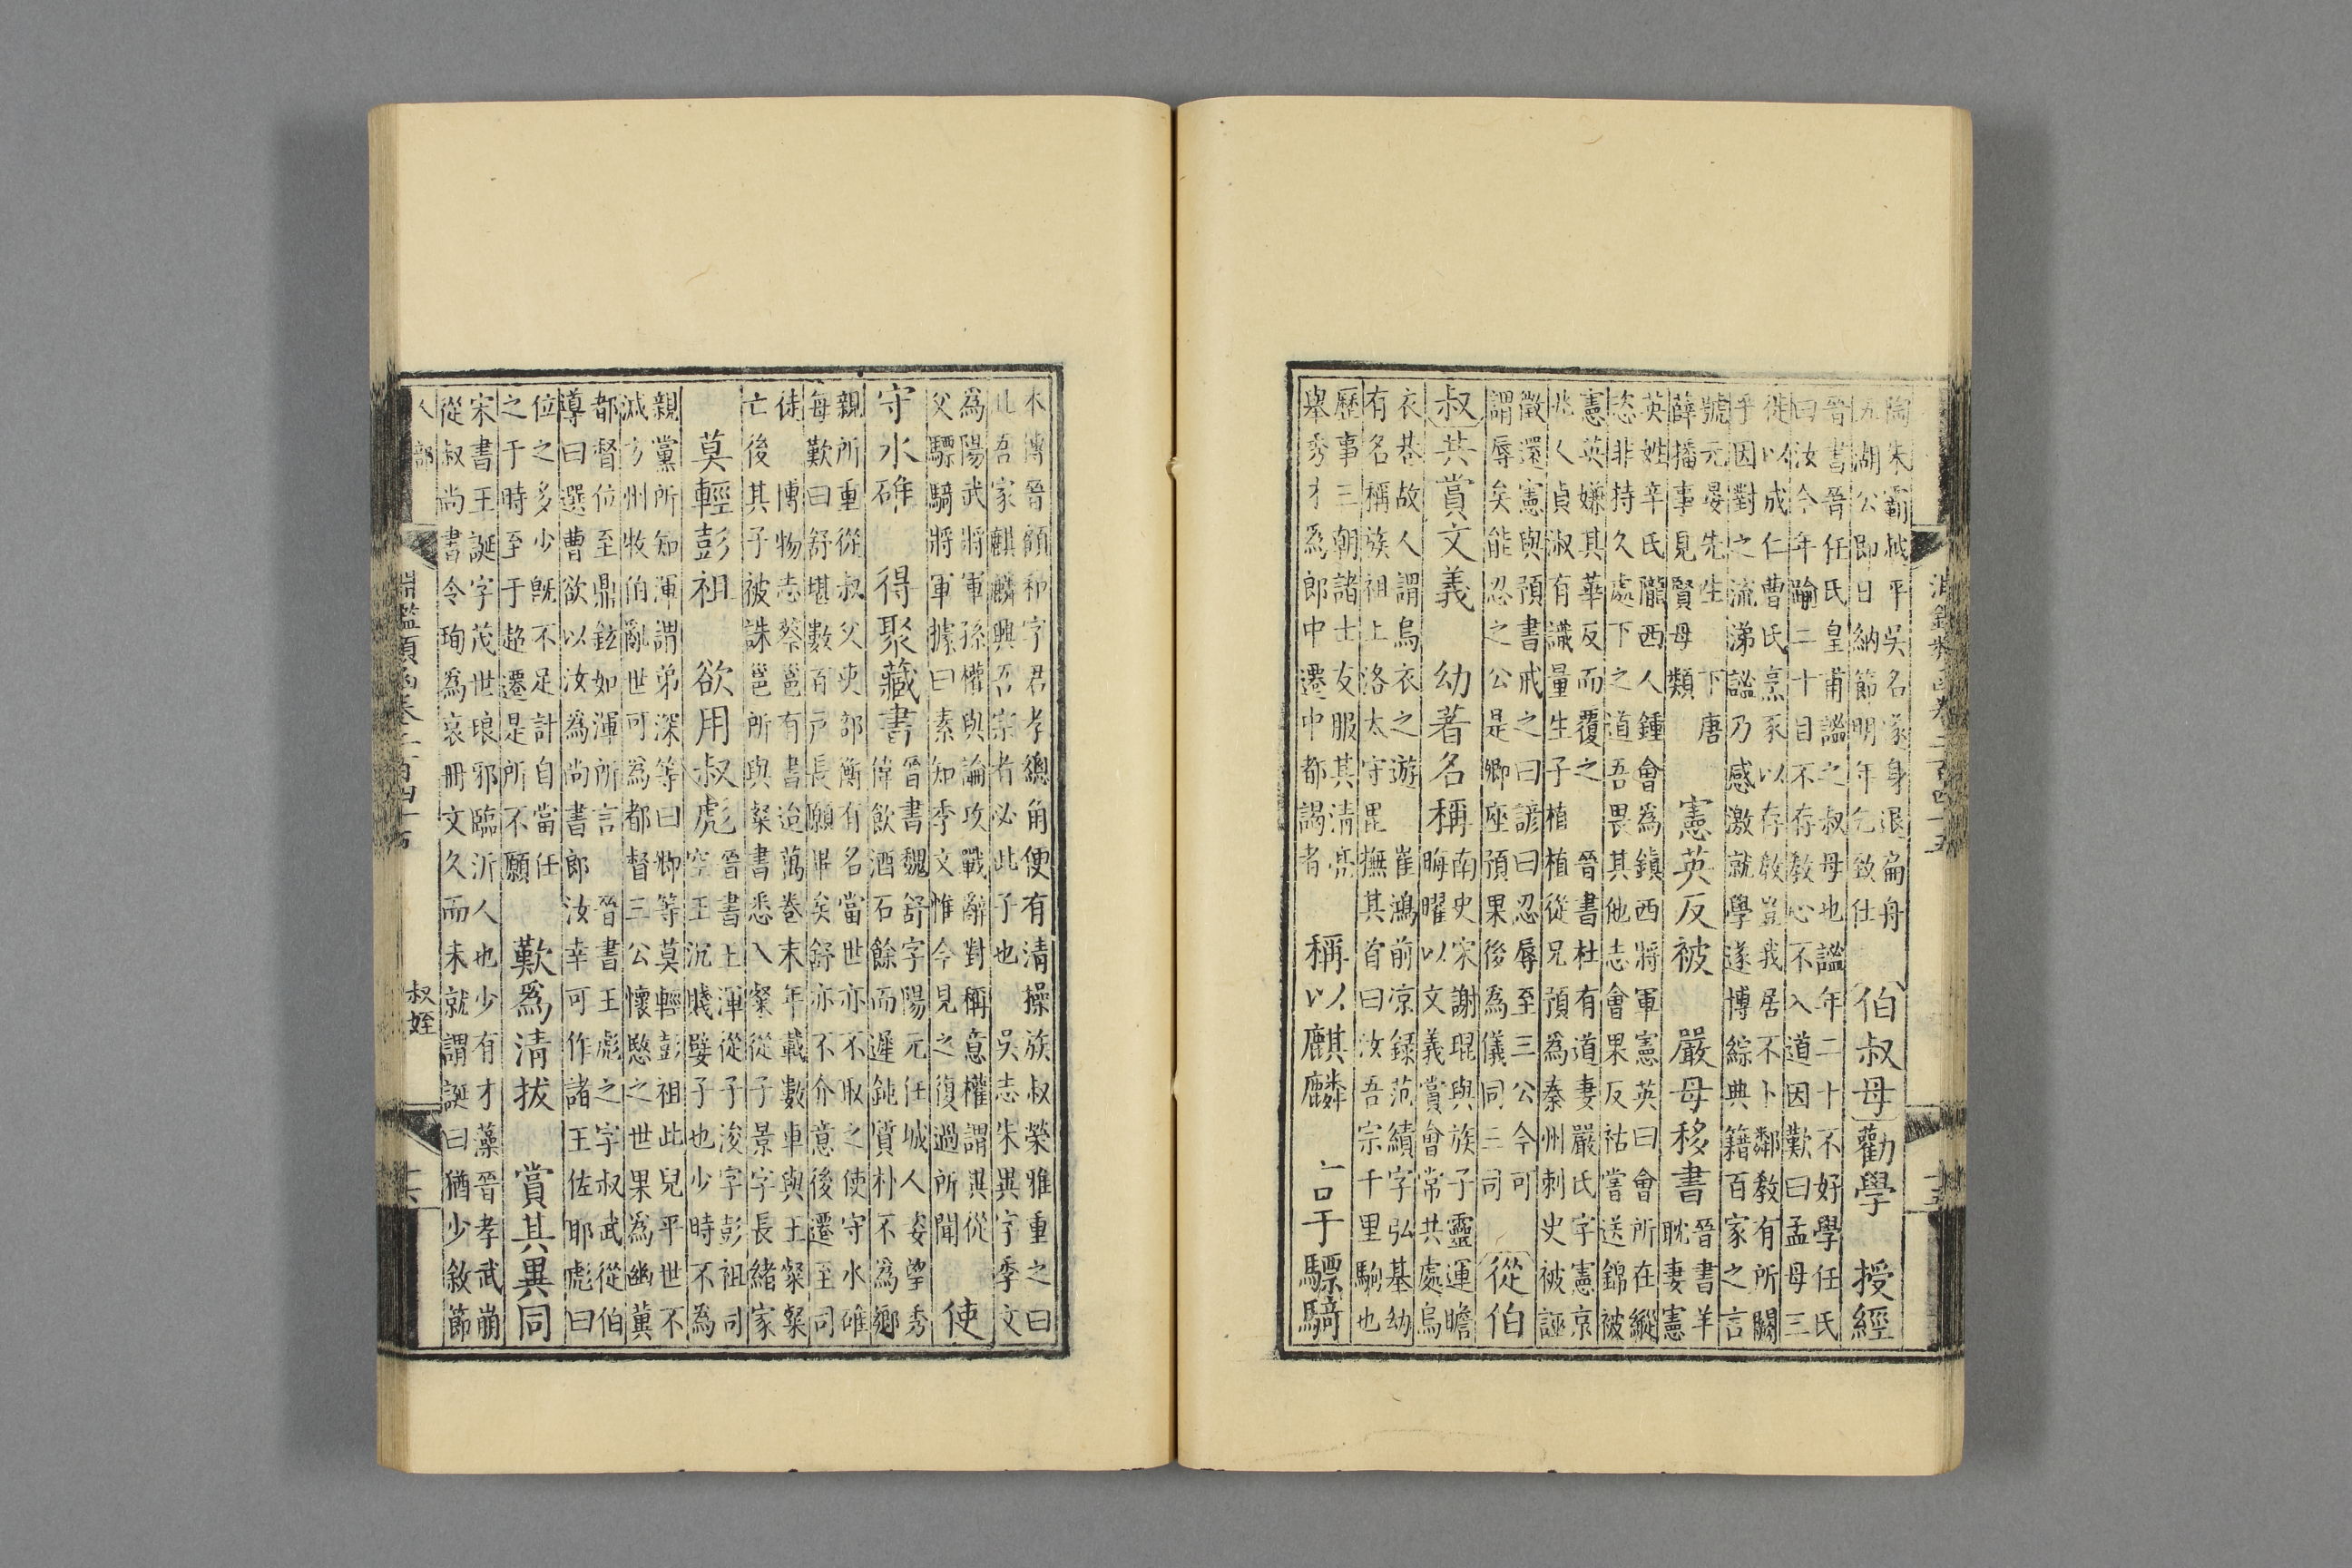 陶朱霸越平吳名遂身退扁舟
五湖公即日納節明年乞致仕
伯叔母勸學　授經
晉書晉任氏皇甫謐之叔母也謐年二十不好學任氏
曰汝今年踰二十目不存教心不入道因歎曰孟母三
徙以成仁曹氏烹豕以存教豈我居不卜鄰教有所闕
乎因對之流涕謐乃感激就學遂博綜典籍百家之言
號元晏先生　下　唐
薛播事見賢母類
憲英反被　嚴母移書
晉書羊
耽妻憲
英姓辛氏隴西人鍾會為鎮西將軍憲英曰會所在縱
恣非持久處下之道吾畏其他志會果反祜嘗送錦被
憲英嫌其華反而覆之　晉書杜有道妻嚴氏字憲京
兆人貞淑有識量生子植植從兄預為秦州刺史被誣
徵還憲與預書戒之曰諺曰忍辱至三公今可
謂辱矣能忍之公是卿座預果後為儀同三司
從伯
叔共賞文義　幼著名稱
南史宋謝琨與族子靈運瞻
晦曜以文義賞會常共處烏
衣巷故人謂烏衣之遊　崔鴻前涼錄范績字弘基幼
有名稱族祖上洛太守毘撫其首曰汝吾宗千里駒也
歷事三朝諸士友服其清亮
舉秀才為郎中遷中都謁者
稱以麒麟　言于驃騎
本傳晉顧和字君孝總角便有清操族叔榮雅重之曰
此吾家麒麟興吾宗者必此子也　吳志朱異字季文
為陽武將軍孫權與論攻戰辭對稱意權謂異從
父驃騎將軍據曰素知季文惟今見之復過所聞
使
守水碓　得聚藏書
晉書魏舒字陽元任城人姿望秀
偉飲酒石餘而遲鈍質朴不為鄉
親所重從叔父吏部衡有名當世亦不取之使守水碓
每歎曰舒堪數百戶長願畢矣舒亦不介意後遷至司
徒　博物志蔡邕有書近萬卷末年載數車與王粲粲
亡後其子被誅邕所與粲書悉入粲從子景字長緒家
莫輕彭祖　欲用叔彪
晉書上渾從子浚字彭祖司
空王沉賤嬖子也少時不為
親黨所知渾謂弟深等曰卿等莫輕彭祖此兒平世不
減方州牧伯亂世可為都督三公懷愍之世果為幽冀
都督位至鼎鉉如渾所言　晉書王彪之字叔武從伯
導曰選曹欲以汝為尚書郎汝幸可作諸王佐耶彪曰
位之多少既不足計自當任
之于時至于超遷是所不願
歎為清拔　賞其異同
宋書王誕字茂世琅邪臨沂人也少有才藻晉孝武崩
從叔尚書令珣為哀冊文久而未就謂誕曰猶少敘節
人部　淵鑑類函卷二百四十五　叔姪